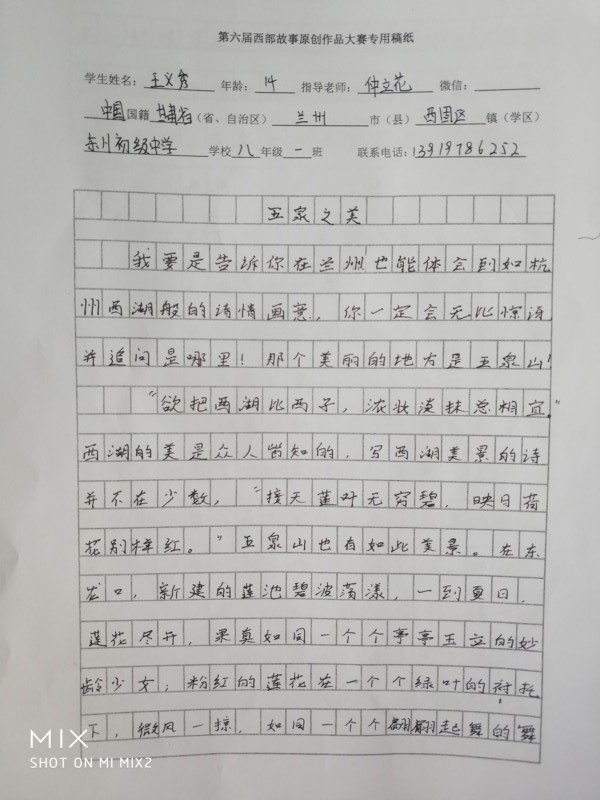 第六届西部故事原创作品大赛专用稿纸
学生姓名：王义秀 年龄：14 指导老师：仲立花 微信：
中国国籍 甘肃省（省、自治区） 兰州 市（县） 西固区 镇（学区）
东川初级中学 学校 八 年级 一 班 联系电话：13919786252
五泉之美
我要是告诉你在兰州也能体会到如杭
州西湖般的诗情画意，你一定会无比惊讶
并追问是哪里！那个美丽的地方是五泉山！
“欲把西湖比西子，浓妆淡抹总相宜。”
西湖的美是众人皆知的，写西湖美景的诗
并不在少数，“接天莲叶无穷碧，映日荷
花别样红。”五泉山也有如此美景。在东
龙口，新建的莲池碧波荡漾，一到夏日，
莲花尽开，果真如同一个个亭亭玉立的妙
龄少女；粉红的莲花在一个个绿叶的衬托
下，微风一掠，如同一个个翩翩起舞的舞
MIX
SHOT ON MI MIX2